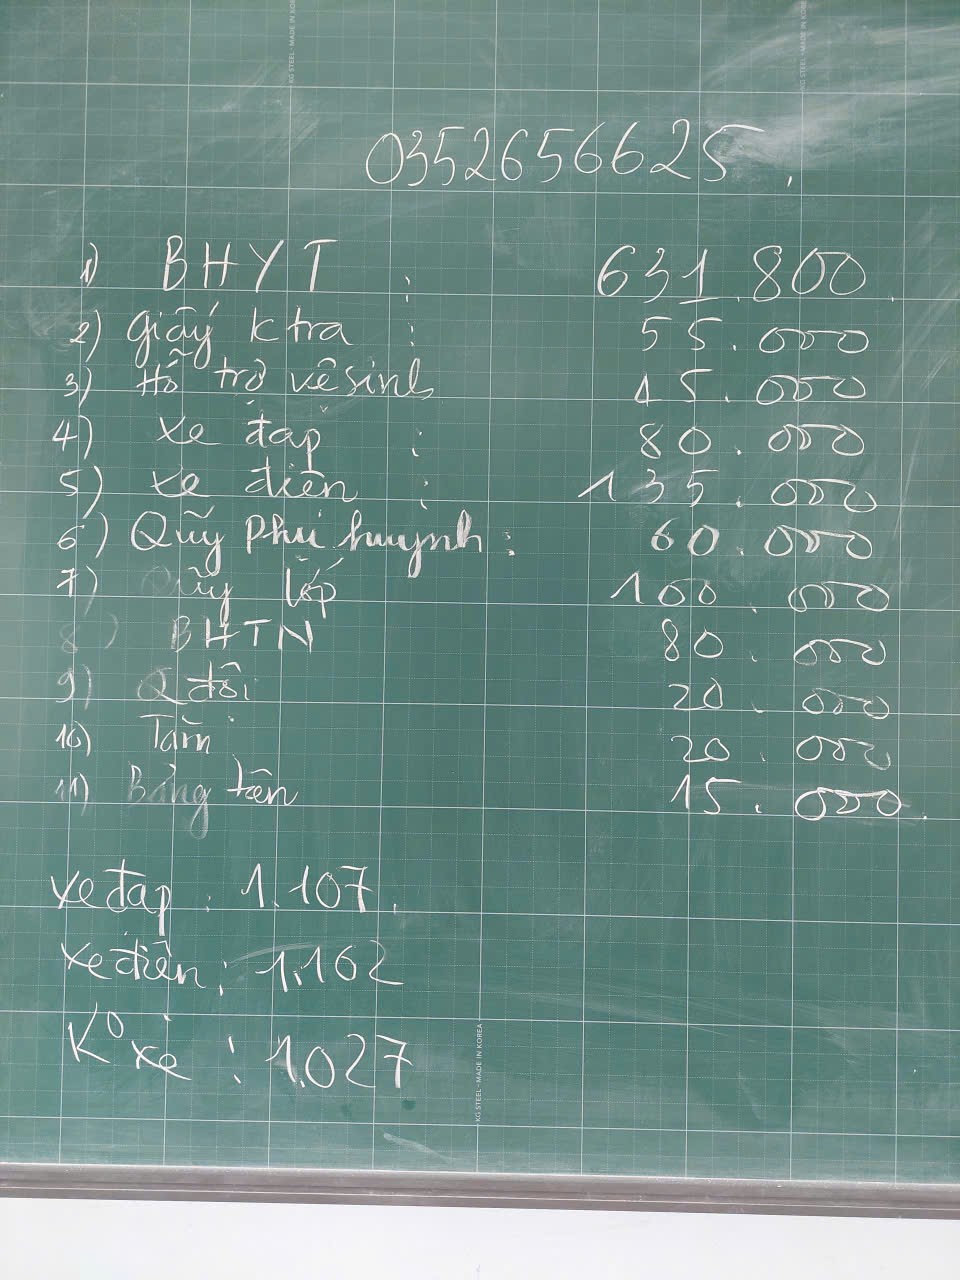 KG STEEL - MADE IN KOREA
KG STEEL - MADE IN KOREA
0352656625.
1) BHYT : 631.800.
2) Giấy ktra : 55.000
3) Hỗ trợ vệ sinh 45.000
4) xe đạp : 80.000
5) xe điện : 135.000
6) Quỹ phụ huynh : 60.000
7) Quỹ lớp 100.000
8) BHTN 80.000
9) Q đội 20.000
10) Tăm 20.000
11) Bảng tên 15.000.
xe đạp : 1.107.
xe điện : 1.162
K° xe : 1.027
KG STEEL - MADE IN KOREA